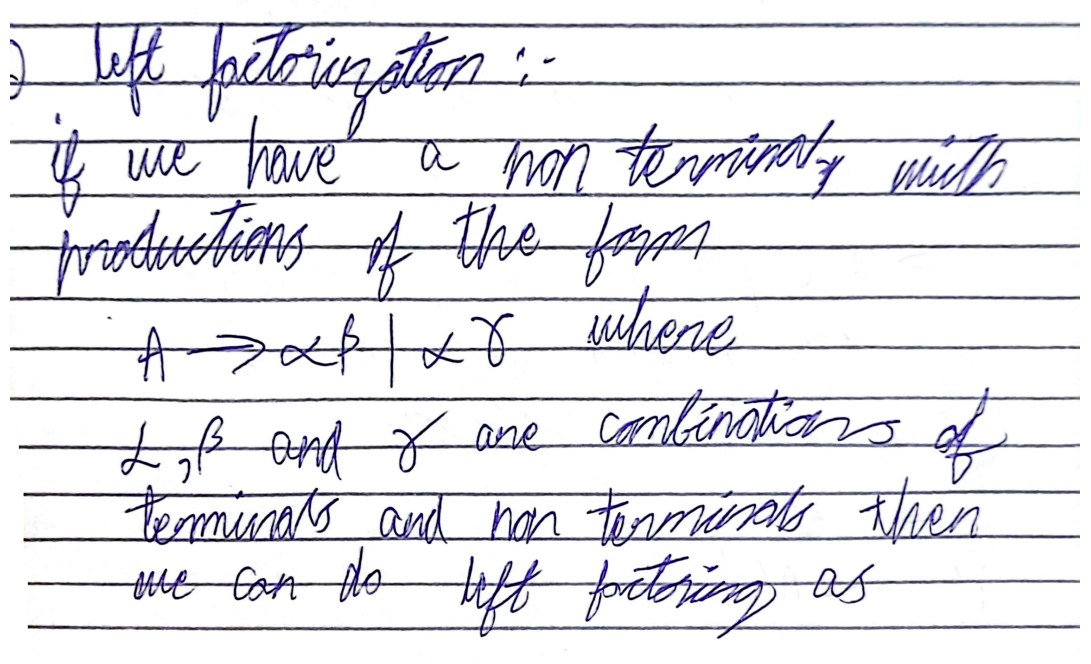 ) left factorization :-
if we have a non terminal, with
productions of the form
A → αβ | αγ where
α, β and γ are combinations of
terminals and non terminals then
we can do left factoring as